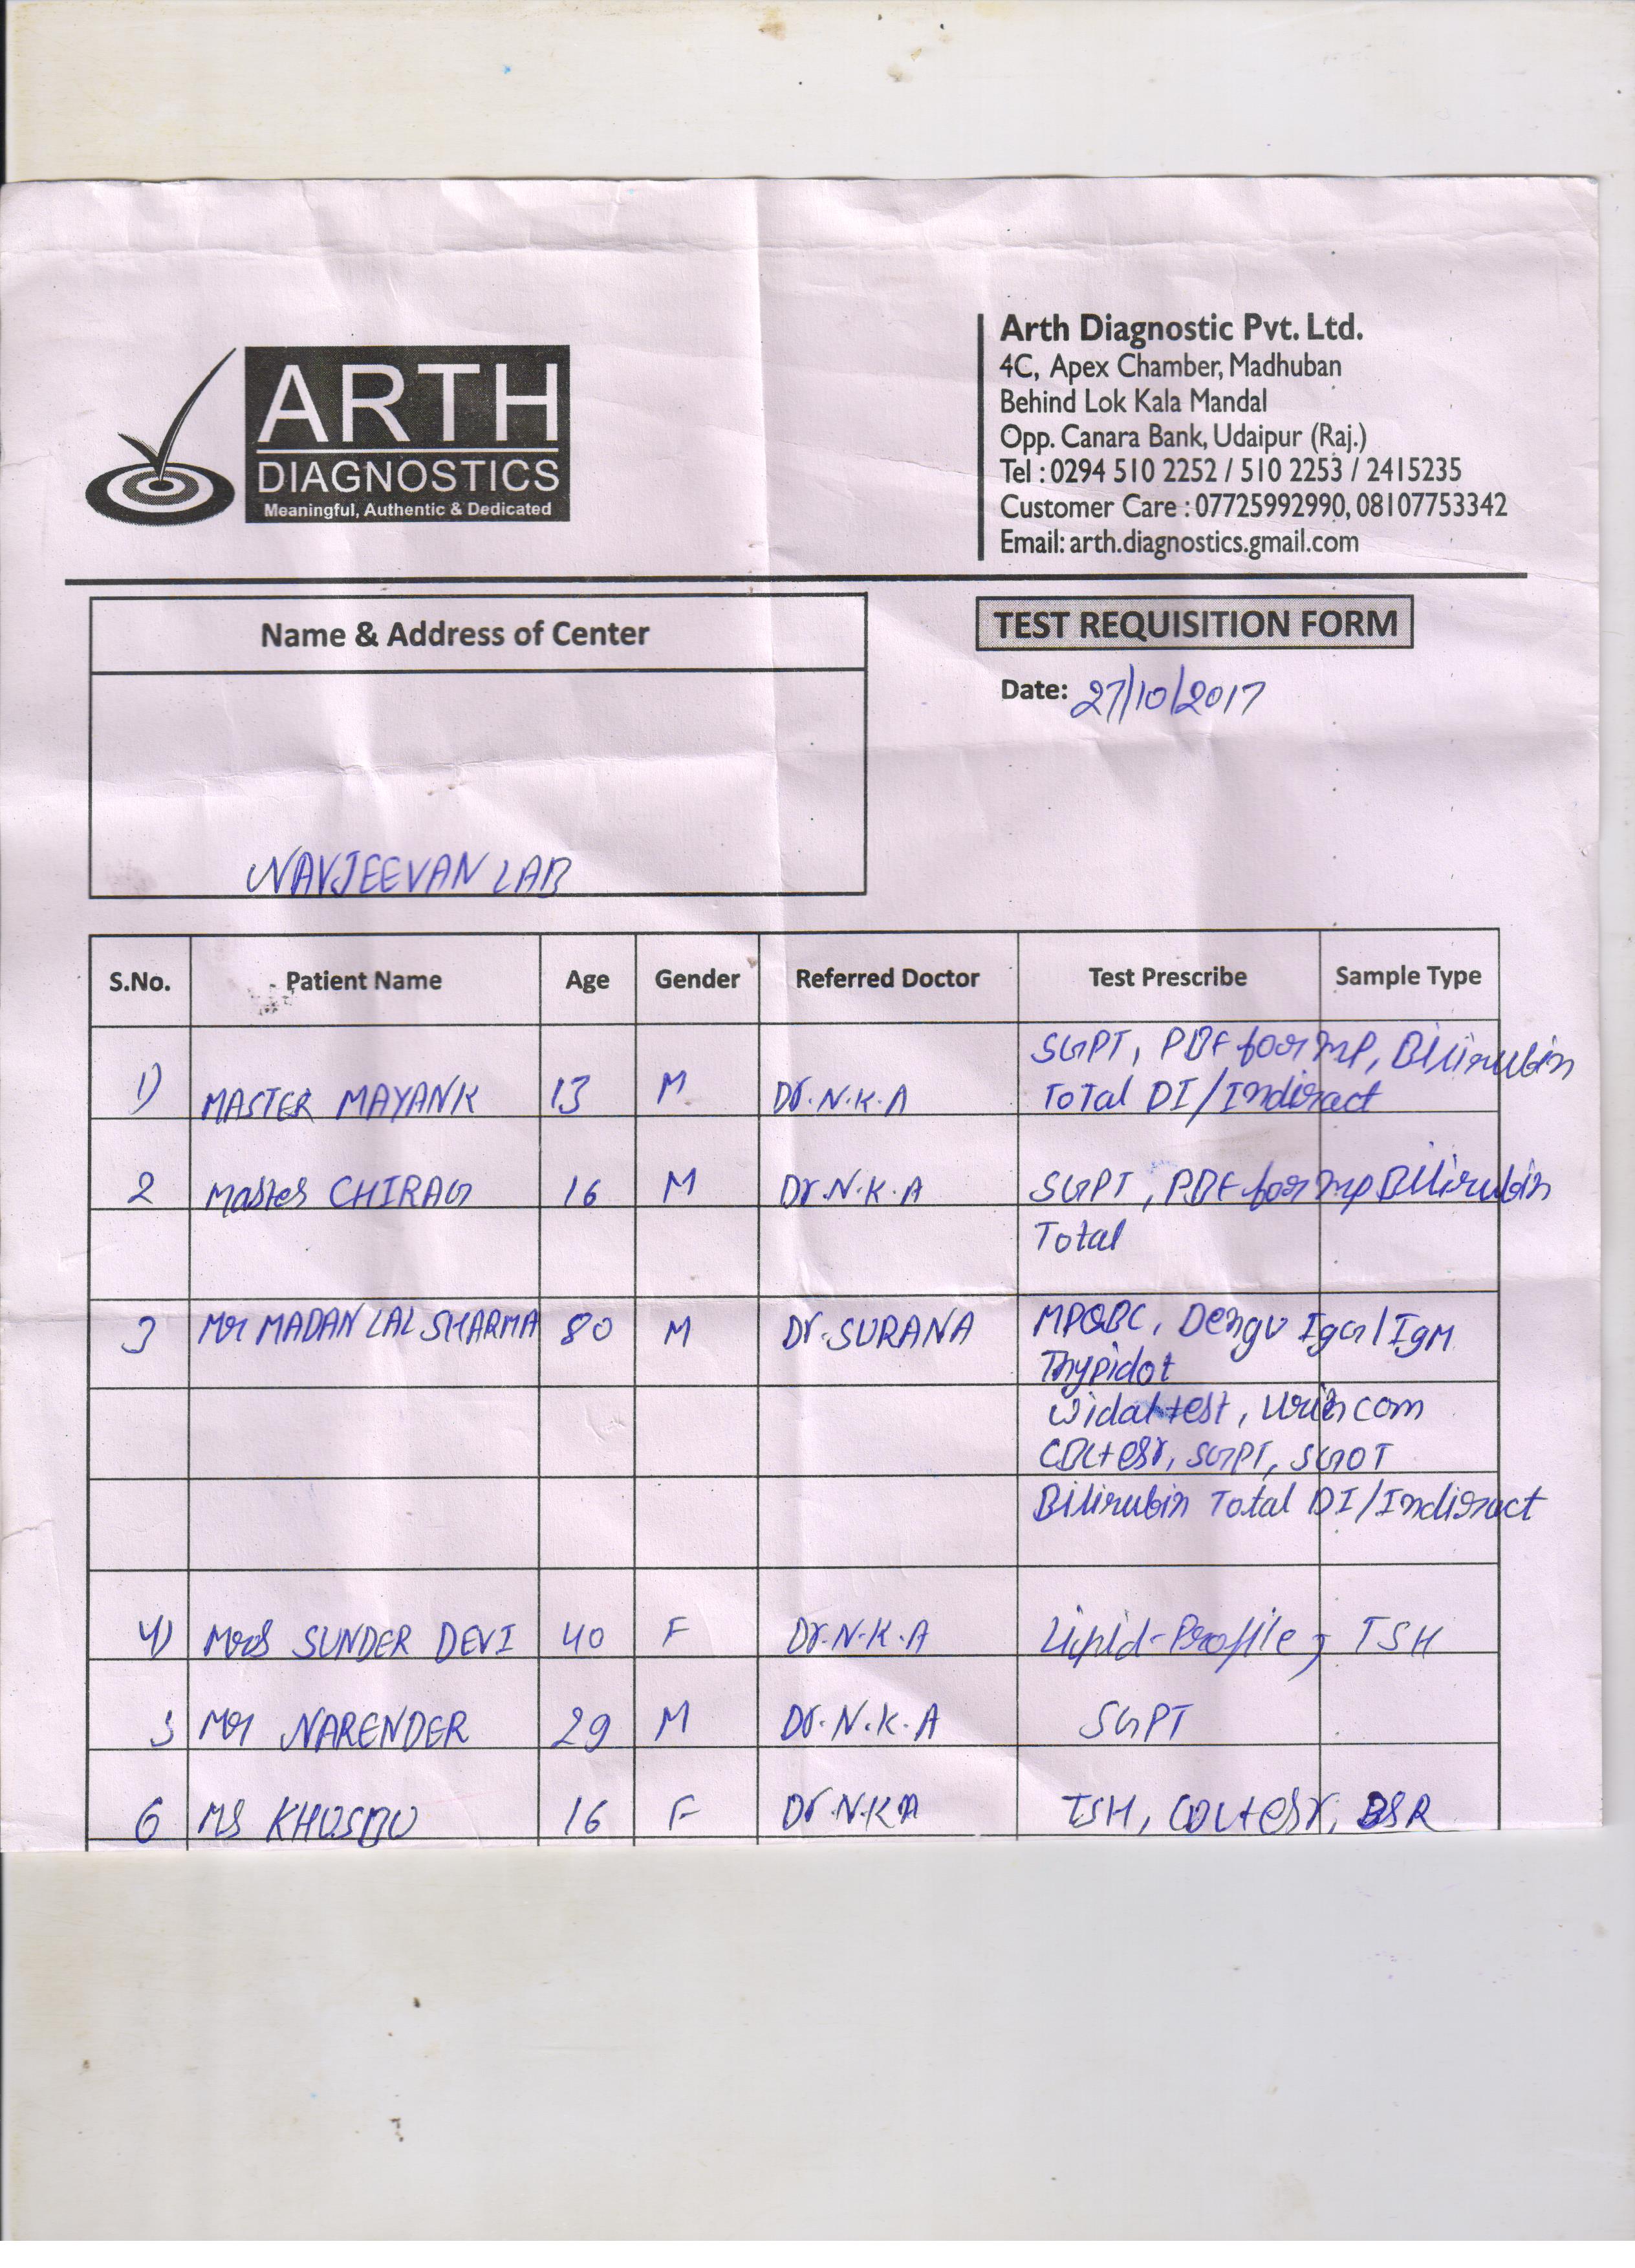 ARTH
DIAGNOSTICS
Meaningful, Authentic & Dedicated
Arth Diagnostic Pvt. Ltd.
4C, Apex Chamber, Madhuban
Behind Lok Kala Mandal
Opp. Canara Bank, Udaipur (Raj.)
Tel : 0294 510 2252 / 510 2253 / 2415235
Customer Care : 07725992990, 08107753342
Email: arth.diagnostics.gmail.com
Name & Address of Center
NAVJEEVAN LAB
TEST REQUISITION FORM
Date: 27/10/2017
S.No. Patient Name Age Gender Referred Doctor Test Prescribe Sample Type
SGPT, PBF for MP, Bilirubin
1) MASTER MAYANK 13 M Dr. N.K.A Total DI/Indiract
2 Master CHIRAG 16 M Dr. N.K.A SGPT, PBF for mp Bilirubin
Total
3 Mr MADAN LAL SHARMA 80 M Dr. SURANA MPQBC, Dengu IgG/IgM
Thypidot
widal test, Urin com
CBC+esr, SGPT, SGOT
Bilirubin Total DI/Indiract
4) Mrs SUNDER DEVI 40 F Dr. N.K.A Lipid-Profile, TSH
5 Mr NARENDER 29 M Dr. N.K.A SGPT
6 MS KHUSBU 16 F Dr. N.K.A TSH, CBC+esr, BSR